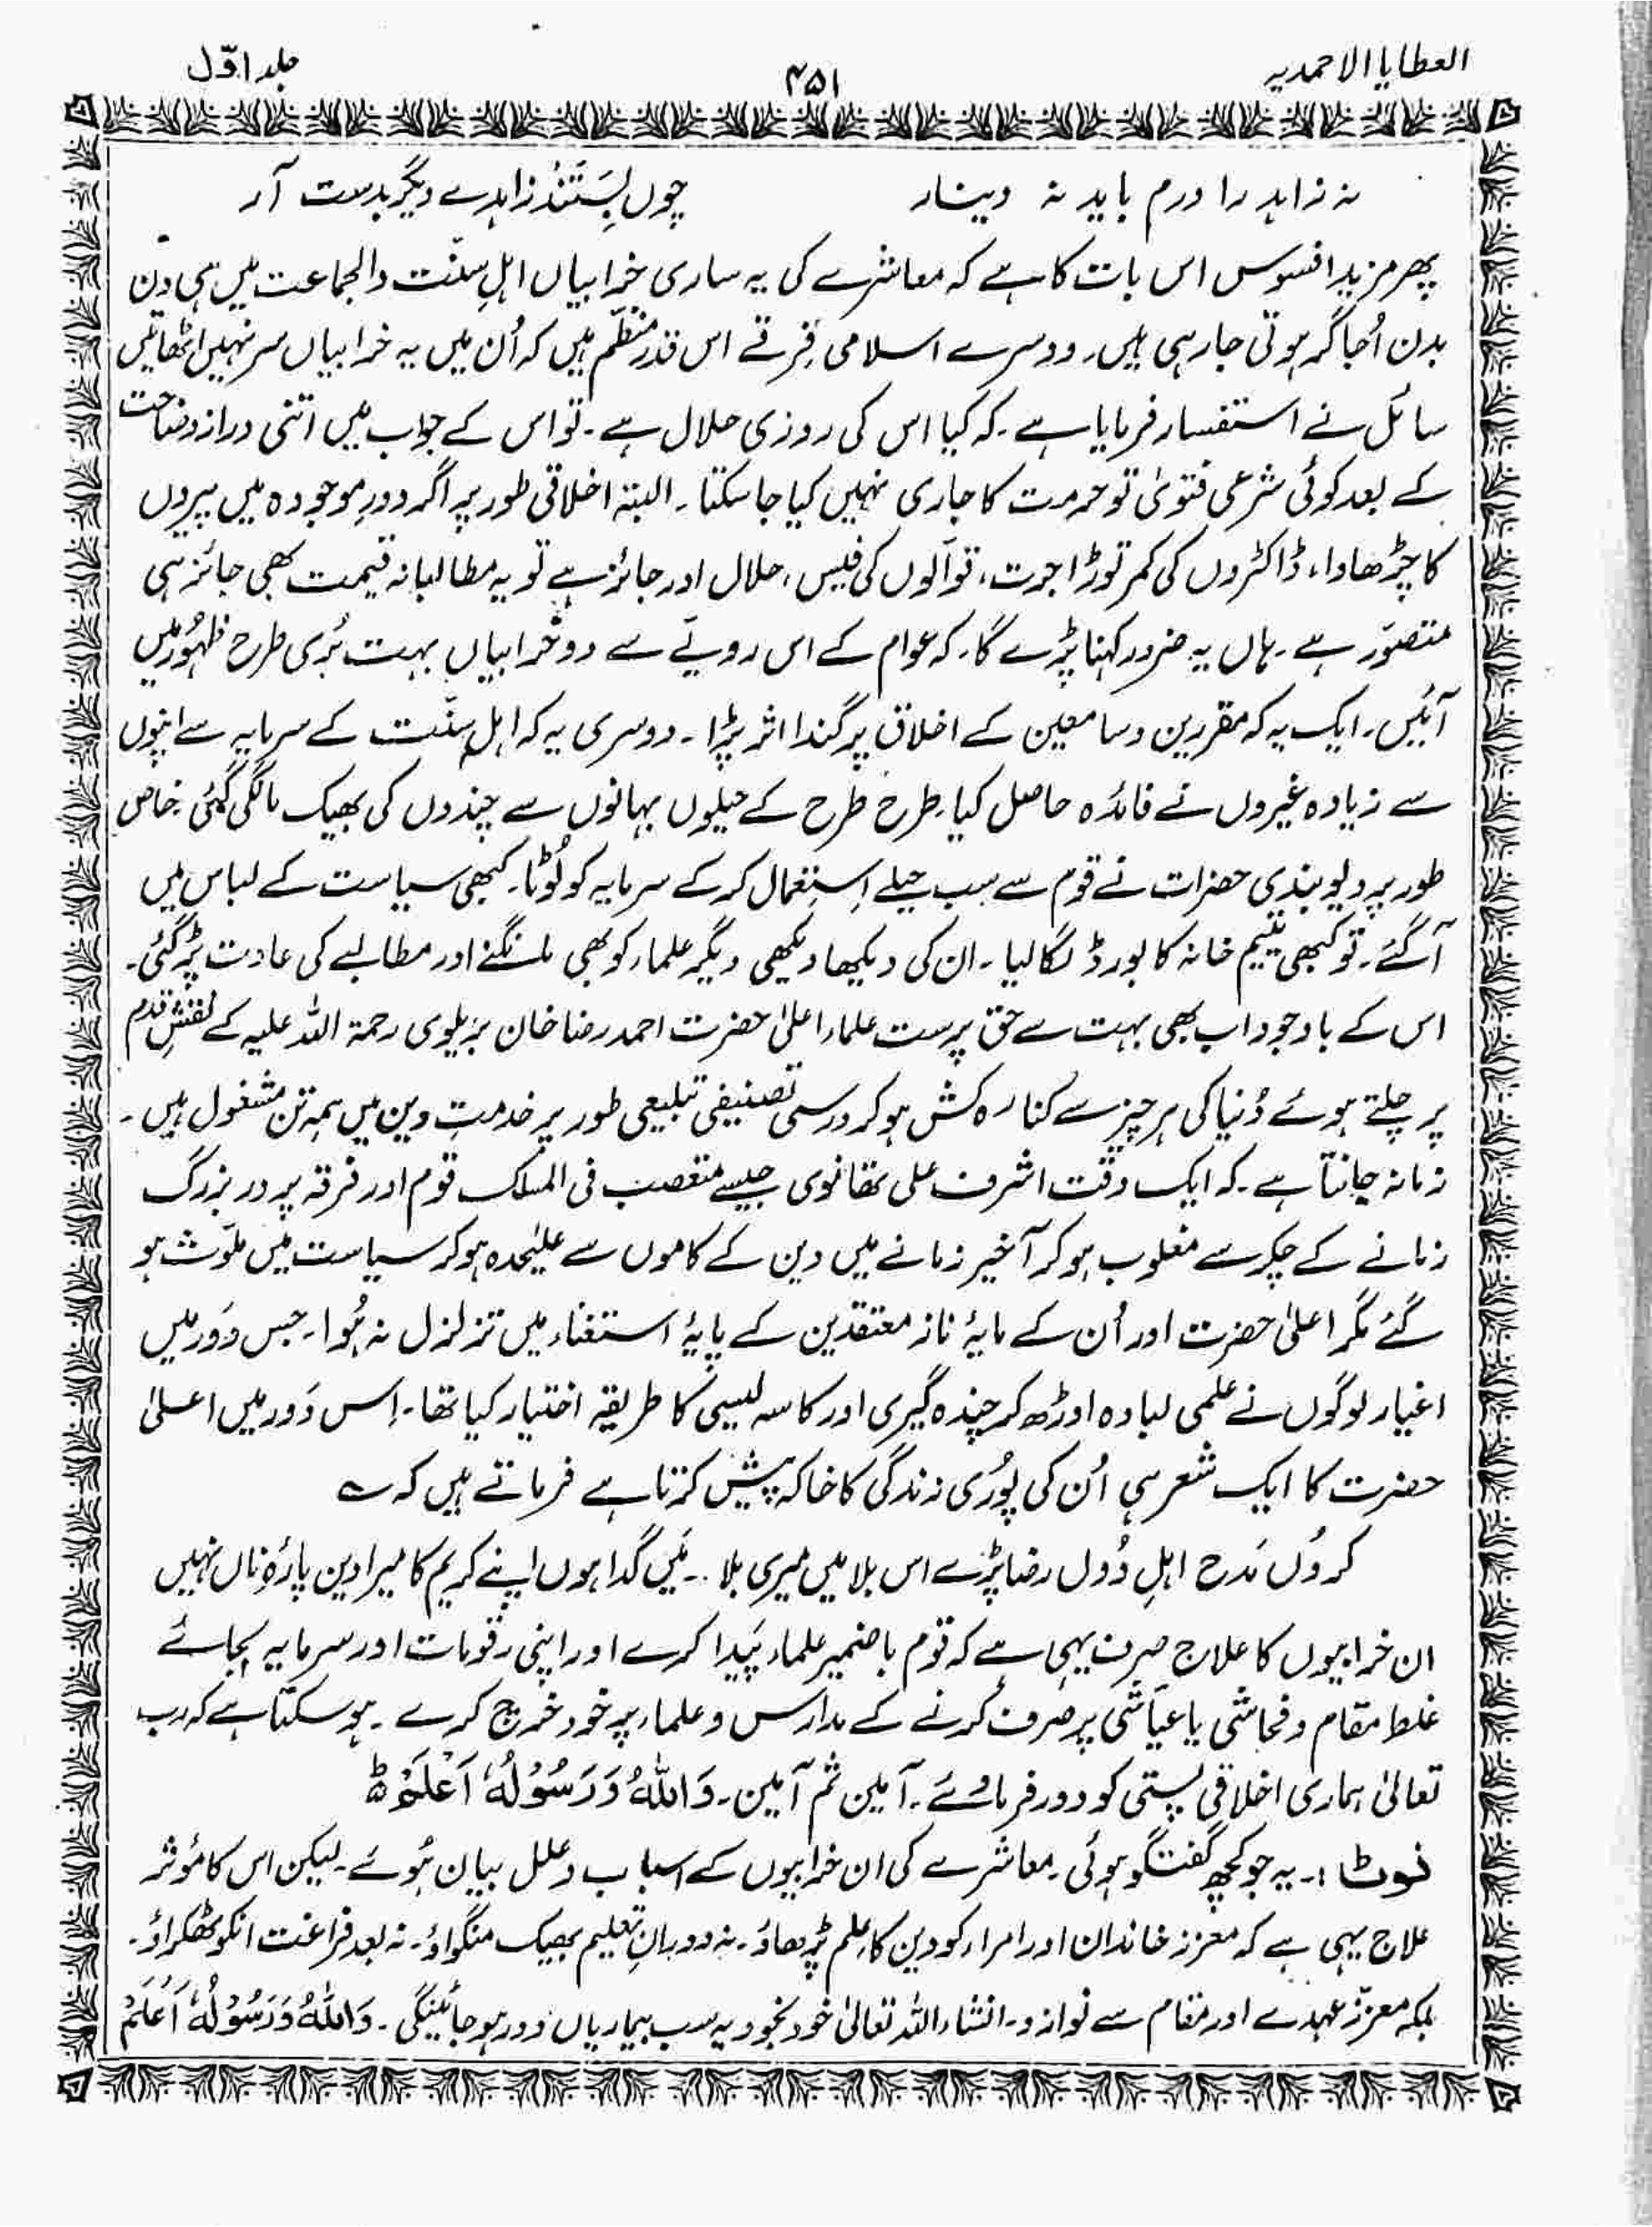 العطایا الاحمدیہ ۴۵۱ جلد اوّل
نہ زاہد را درم باید نہ دینار چوں بِسَتَنْد زاہدے دیگر بدست آر
پھر مزید افسوس اس بات کا ہے کہ معاشرے کی یہ ساری خرابیاں اہلِ سنّت والجماعت میں ہی دن
بدن اُجاگر ہوتی جا رہی ہیں۔ دوسرے اسلامی فِرقے اس قدر منظّم ہیں کہ اُن میں یہ خرابیاں سر نہیں اٹھاتیں
سائل نے استفسار فرمایا ہے۔ کہ کیا اس کی روزی حلال ہے۔ تو اس کے جواب میں اتنی دراز وضاحت
کے بعد کوئی شرعی فتویٰ تو حرمت کا جاری نہیں کیا جا سکتا۔ البتہ اخلاقی طور پر اگر دورِ موجودہ میں پیروں
کا چڑھاوا، ڈاکٹروں کی کمر توڑ اجرت، قوّالوں کی فیس، حلال اور جائز ہے تو یہ مطالبانہ قیمت بھی جائز ہی
متصوّر ہے۔ ہاں یہ ضرور کہنا پڑے گا۔ کہ عوام کے اس رویّے سے دو خرابیاں بہت بُری طرح ظہُور میں
آئیں۔ ایک یہ کہ مقررین و سامعین کے اخلاق پر گندا اثر پڑا۔ دوسری یہ کہ اہلِ سنّت کے سرمایہ سے اپنوں
سے زیادہ غیروں نے فائدہ حاصل کیا۔ طرح طرح کے حیلوں بہانوں سے چندوں کی بھیک مانگی گئی۔ خاص
طور پر دیوبندی حضرات نے قوم سے سب حیلے اِستِعمال کر کے سرمایہ کو لُوٹا۔ کبھی سیاست کے لباس میں
آ گئے۔ تو کبھی یتیم خانہ کا بورڈ لگا لیا۔ ان کی دیکھا دیکھی دیگر علماء کو بھی مانگنے اور مطالبے کی عادت پڑ گئی۔
اس کے باوجود اب بھی بہت سے حق پرست علماء اعلیٰ حضرت احمد رضا خان بریلوی رحمۃ اللہ علیہ کے نقشِ قدم
پر چلتے ہوئے دُنیا کی ہر چیز سے کنارہ کش ہو کر درسی تصنیفی تبلیعی طور پر خدمتِ دین میں ہمہ تن مشغول ہیں۔
زمانہ جانتا ہے۔ کہ ایک وقت اشرف علی تھانوی جیسے متعصب فی المسلک قوم اور فرقہ پرور بزرگ
زمانے کے چکر سے مغلوب ہو کر آخیر زمانے میں دین کے کاموں سے علیٰحدہ ہو کر سیاست میں ملوّث ہو
گئے مگر اعلیٰ حضرت اور اُن کے مایۂ ناز معتقدین کے پایۂ استغناء میں تزلزل نہ ہُوا۔ جس دَور میں
اغیار لوگوں نے علمی لبادہ اوڑھ کر چندہ گیری اور کاسہ لیسی کا طریقہ اختیار کیا تھا۔ اِس دَور میں اعلیٰ
حضرت کا ایک شعر ہی اُن کی پوُری زندگی کا خاکہ پیش کرتا ہے فرماتے ہیں کہ ؎
کروُں مَدح اہلِ دُوَل رضا پڑے اس بلا میں میری بلا ۔۔ مَیں گدا ہوں اپنے کریم کا میرا دین پارۂ ناں نہیں
ان خرابیوں کا علاج صِرف یہی ہے کہ قوم باضمیر علماء پَیدا کرے اور اپنی رقومات اور سرمایہ بجائے
غلط مقام و فحاشی یا عیّاشی پر صرف کرنے کے مدارس و علماء پر خود خرچ کرے۔ ہو سکتا ہے کہ رب
تعالیٰ ہماری اخلاقی پستی کو دور فرماوے۔ آمین ثم آمین۔ وَاللهُ وَرَسُوْلُهٗ اَعْلَمُ
نوٹ :۔ یہ جو کچھ گفتگو ہوئی۔ معاشرے کی ان خرابیوں کے اسباب و علل بیان ہُوئے۔ لیکن اس کا مُوثر
علاج یہی ہے کہ معزز خاندان اور امراء کو دین کا عِلم پڑھاؤ۔ نہ دورانِ تعلیم بھیک منگواؤ۔ نہ بعد فراغت انکو ٹھکراؤ۔
بلکہ معزّز عہدے اور مقام سے نوازو۔ انشاء اللہ تعالیٰ خود بخود یہ سب بیماریاں دور ہو جائینگی۔ وَاللهُ وَرَسُوْلُهٗ اَعْلَمُ